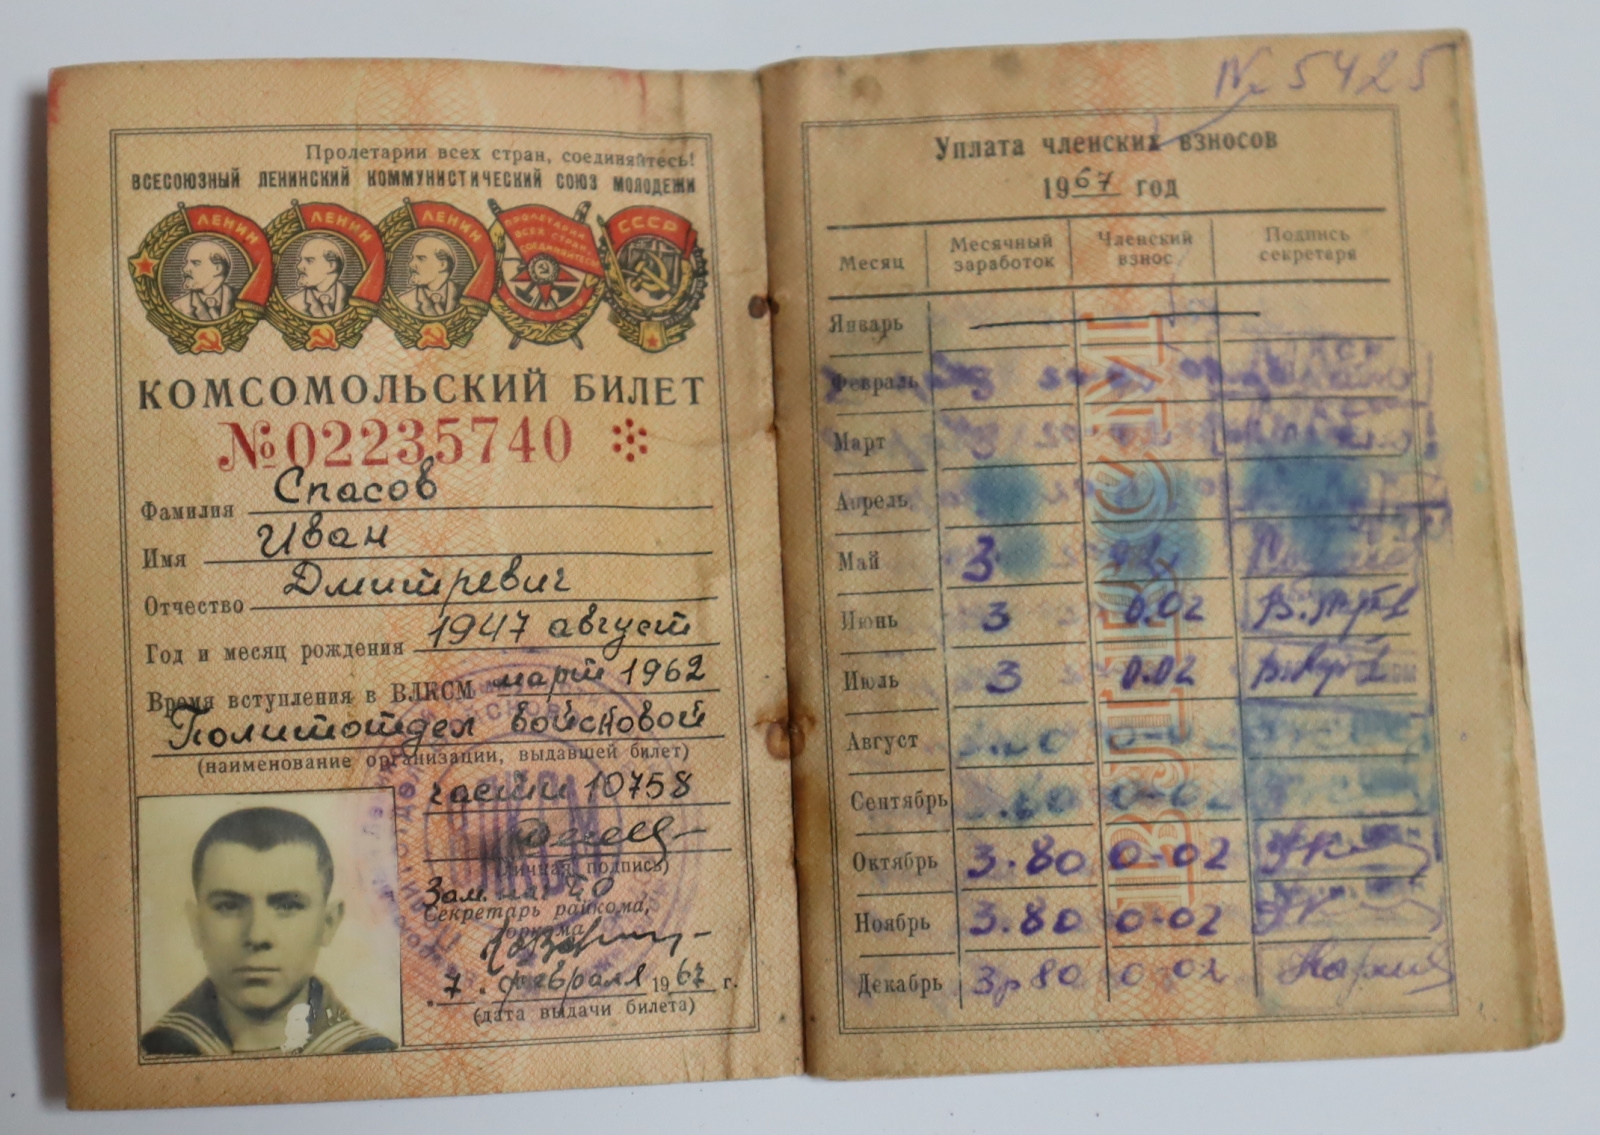 Пролетарии всех стран, соединяйтесь!
ВСЕСОЮЗНЫЙ ЛЕНИНСКИЙ КОММУНИСТИЧЕСКИЙ СОЮЗ МОЛОДЕЖИ
ЛЕНИН ЛЕНИН ЛЕНИН ПРОЛЕТАРИИ ВСЕХ СТРАН СОЕДИНЯЙТЕСЬ СССР
КОМСОМОЛЬСКИЙ БИЛЕТ
№02235740
Фамилия Спасов
Имя Иван
Отчество Дмитревич
Год и месяц рождения 1947 август
Время вступления в ВЛКСМ март 1962
Политотдел войсковой
(наименование организации, выдавшей билет)
части 10758
(личная подпись)
Зам.
Секретарь райкома,
горкома
7 февраля 1967 г.
(дата выдачи билета)
№ 5425
Уплата членских взносов
1967 год
Месяц Месячный заработок Членский взнос Подпись секретаря
Январь
Февраль 3
Март 3
Апрель
Май 3
Июнь 3 0.02
Июль 3 0.02
Август
Сентябрь 0-02
Октябрь 3.80 0-02
Ноябрь 3.80 0-02
Декабрь 3р80 0-02
ВЛКСМ